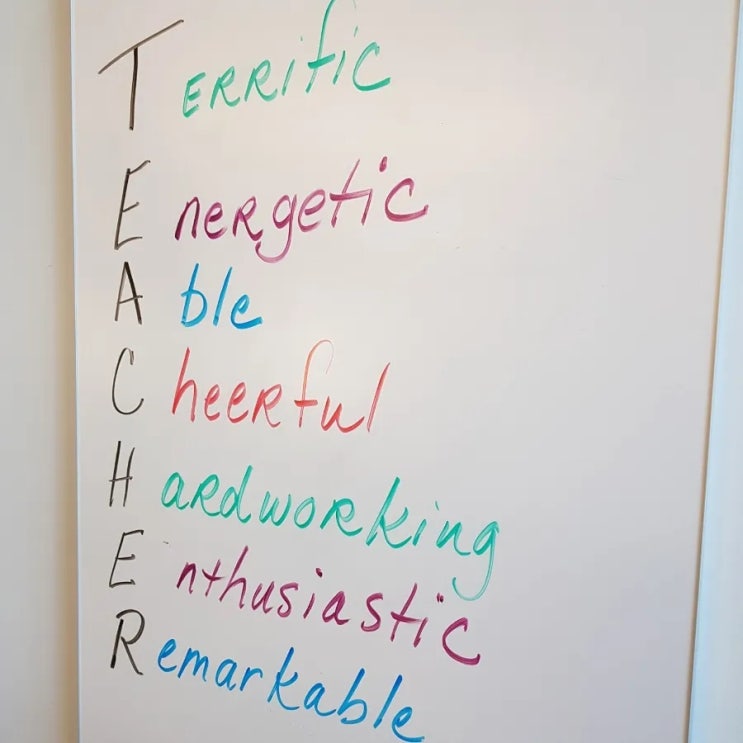 Terrific
Energetic
Able
Cheerful
Hardworking
Enthusiastic
Remarkable